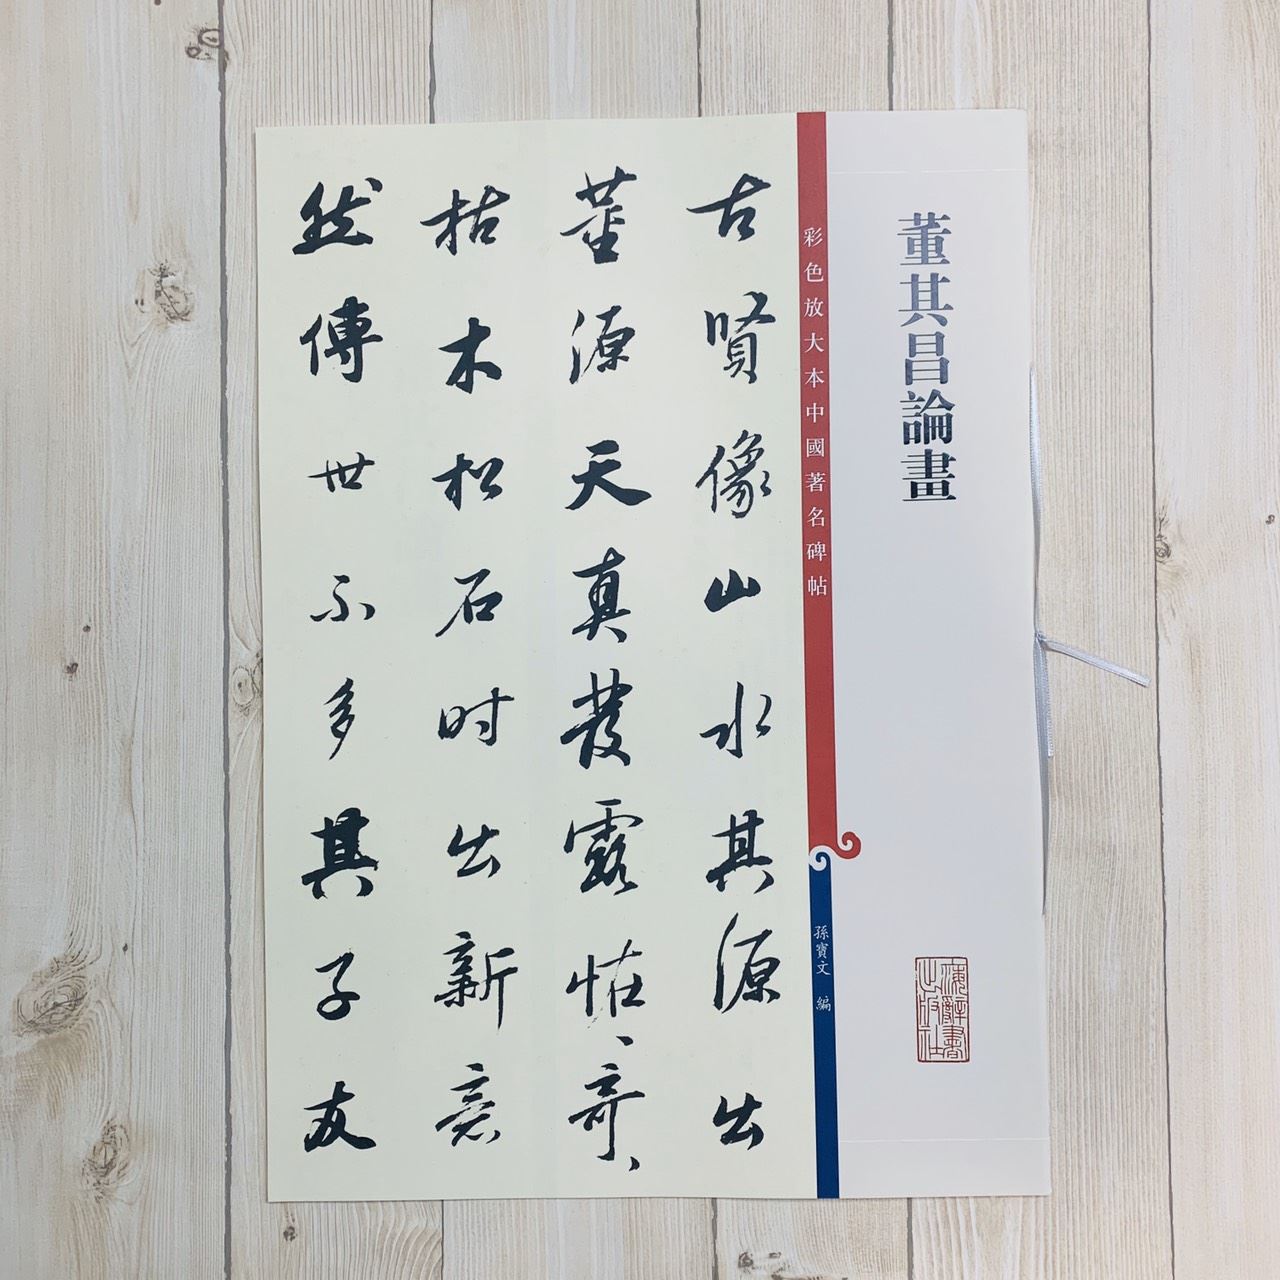 董其昌論畫
彩色放大本中國著名碑帖
孫寶文 編
海辭書
出版社
古賢像山水其源出
董源天真發露恠、奇、
枯木松石时出新意
然傳世不多其子友